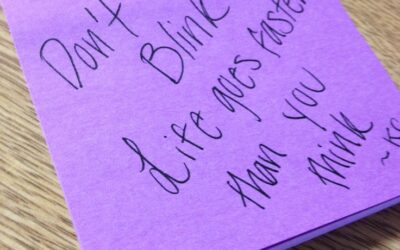 Don't
Blink
Life goes faster
than you
think